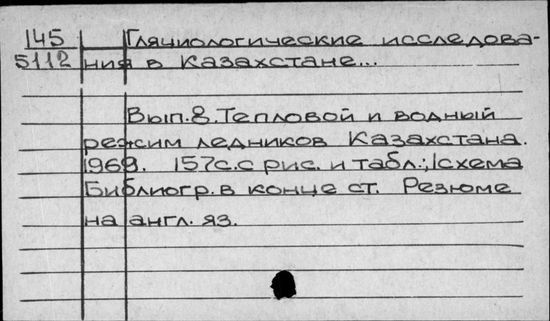 145 Гляциологические исследова-
5112 ния в Казахстане...
Вып.8. Тепловой и водный
режим ледников Казахстана.
1969. 157с. с рис. и табл.; 1схема
Библиогр. в конце ст. Резюме
на англ. яз.